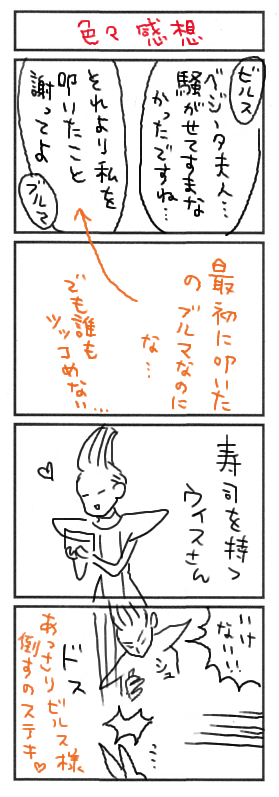 色々感想
ビルス
ベジータ夫人…
騒がせてすまな
かったですね…
それより私を
叩いたこと
謝ってよ
ブルマ
最初に叩いた
の ブルマなのに
な…
でも誰も
ツッコめない…
寿司を持つ
ウイスさん
いけ
ない!!
シュ
ドス
あっさりビルス様
倒すのステキ